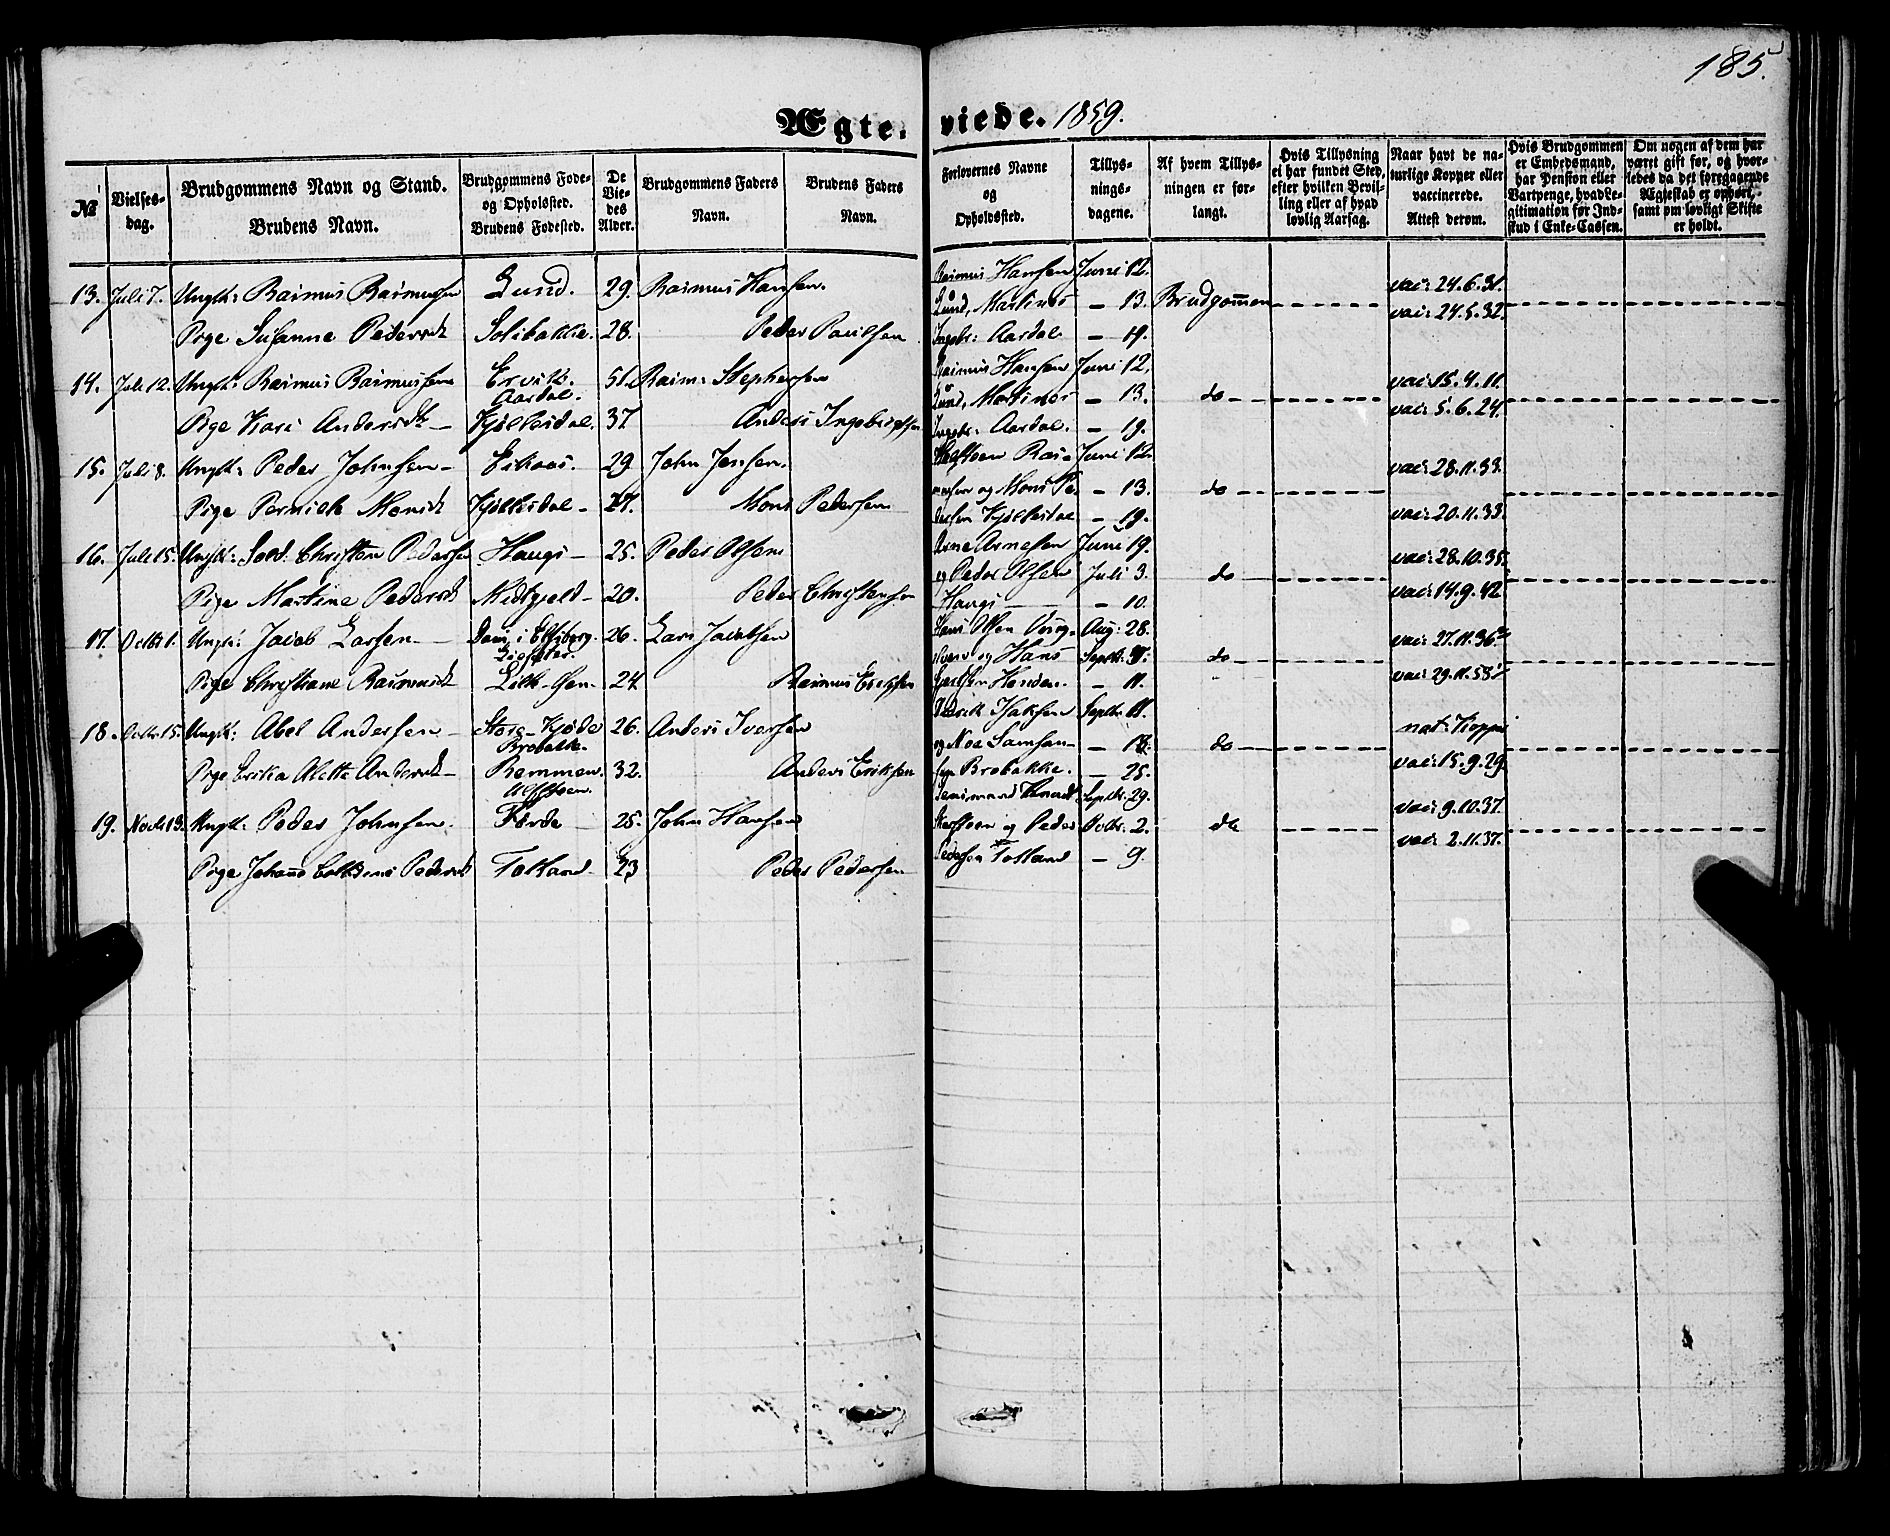 185.
Ægte-viede. 1859.
№
Vielses-dag.
Brudgommens Navn og Stand.
Brudens Navn.
Brudgommens Føde-og Opholdssted.
Brudens Fødested.
De Vie-des Alder.
Brudgommens Faders Navn.
Brudens Faders Navn.
Forlovernes Navne og Opholdssted.
Tillys-nings-dagene.
Af hvem Tillys-ningen er for-langt.
Hvis Tillysning ei har fundet Sted, efter hvilken Bevil-ling eller af hvad lovlig Aarsag.
Naar havt de na-turlige Kopper eller vaccinerede. Attest derom.
Hvis Brudgommen er Embedsmand, har Pension eller Vartpenge, hvad Le-gitimation for Ind-skud i Enke-Cassen.
Om nogen af dem har været gift før, og hvor-ledes da det foregaaende Ægteskab er ophørt, samt om lovligt Skifte er holdt.
13. Juli 7. Ungk: Rasmus Rasmussen Lund. 29. Rasmus Hansen. Rasmus Hansen Juni 12. vac: 24.6.31.
Lund, Martinus — 13. Brudgommen vac: 24.5.32.
Pige Susanne Pedersdt Solibakkie. 28. Peder Paulsen Ingebr: Aardal — 19.
14. Juli 12. Ungk: Rasmus Rasmussen Ervik. Aardal. 51. Rasm: Stephensen Rasmus Hansen Juni 12. vac: 15.4.11.
Lund, Martinus — 13. do vac: 5.6.24.
Pige Kari Andersdt Kjølkesdal. 37 Anders Ingebrigtsen Ingebr: Aardal. — 19.
15. Juli 8. Ungk: Peder Johnsen Eikaas. 29 John Jensen. Ras- Juni 12. vac: 28.11.33.
mussen og Mons Pe- — 13. do
Pige Pernille Monsdt Kjølkesdal 27. Mons Pedersen dersen Kjølkesdal — 19. vac: 20.11.33.
16. Juli 15. Ungk: Sold. Christen Pedersen Haugs 25. Peder Olsen Arne Arnesen Juni 19. vac: 28.10.35.
og Peder Olsen Juli 3. do
Pige Martine Pedersdt Midtgjeld 20. Peder Christensen Haugs — 10. vac: 14.9.42.
17. Octbr 1. Ungk: Jacob Larsen 26. Lars Jacobsen Hans Olsen Aug: 28. vac: 27.11.36.
og Hans Septbr: 4. do
Pige Christiane Rasmusdt 24 Rasmus Eriksen Honden. — 11. vac: 29.11.58.
18. Octbr. 15. Ungk: Abel Andersen Brobakke. 26. Anders Iversen Isaksen Septbr 11. nat: Kopper
og Noe Samson- — 18. do
Pige Erika Alette Andersdt Remmen. 32. Anders Eriksen sen Brobakke. — 25. vac: 15.9.29.
19. Novbr 13. Ungk: Peder Johnsen. Førde 25. John Hansen Septbr. 29. vac: 9.10.37.
og Peder Octbr: 2. do vac: 2.11.37.
Pige Johanne Pedersdt Totland 23 Peder Pedersen Pedersen Totland — 9.